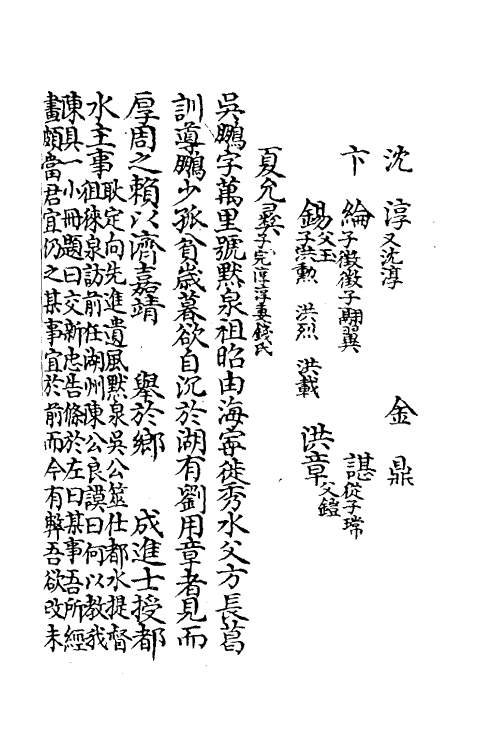 沈　淳又沈淳　金　鼎
卞　綸子徵徵子翺翼　諶從子㻴
錫父玉子洪勲　洪烈　洪載　洪章父鎧
夏允彝子完淳淳妻錢氏
吳鵬字萬里號默泉祖昭由海寧徙秀水父方長葛
訓導鵬少孤貧歲暮欲自沉於湖有劉用章者見而
厚周之賴以濟嘉靖　舉於鄉　成進士授都
水主事耿定向先進遺風默泉吳公筮仕都水提督
徂徠泉訪前任湖州陳公良謨曰何以教我
陳具一小冊題曰交新忠告條於左曰某事吾所經
畫頗當君宜仍之某事宜於前而今有弊吾欲改未